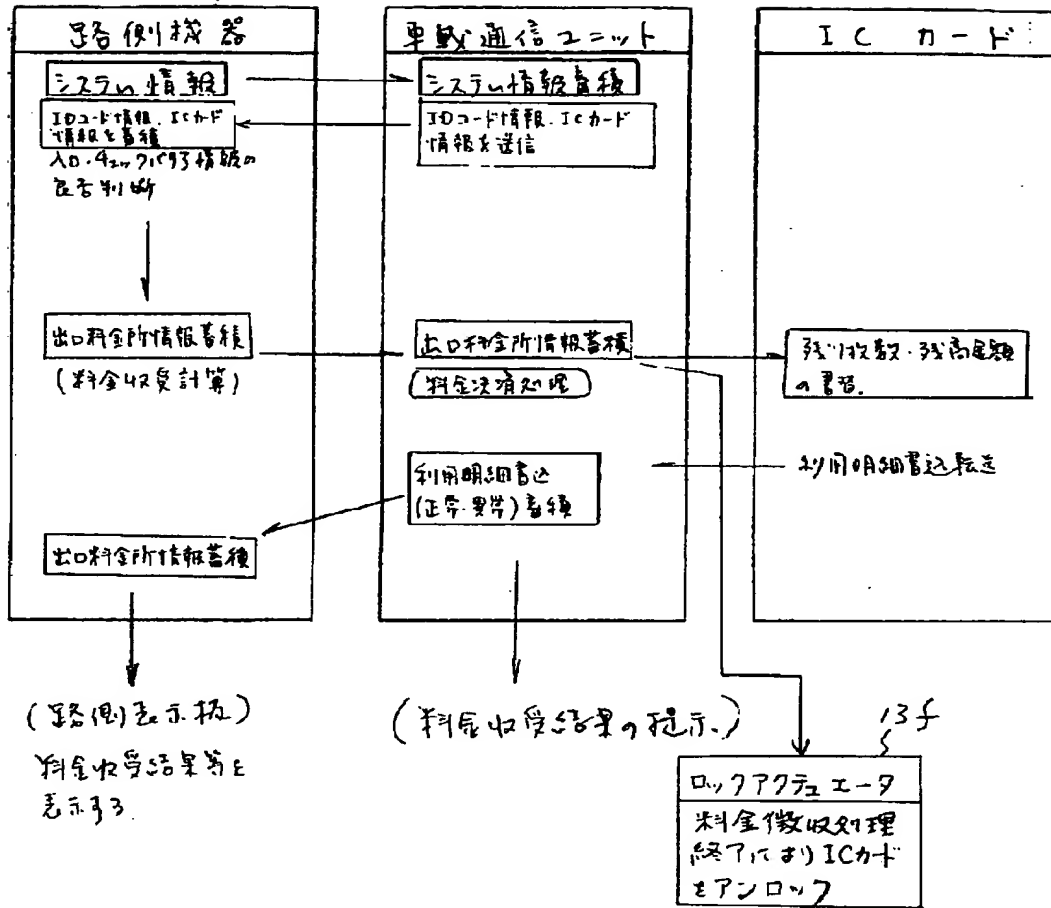 路側機器
システム情報
IDコード情報、ICカード
情報を蓄積
入口・チェックバリア情報の
良否判断
出口料金所情報蓄積
(料金収受計算)
出口料金所情報蓄積
(路側表示板)
料金収受結果等を
表示する
車載通信ユニット
システム情報蓄積
IDコード情報、ICカード
情報を送信
出口料金所情報蓄積
(料金決済処理)
利用明細書込
(正常・異常)蓄積
(料金収受結果の提示)
ICカード
残り枚数・残高金額
の書替
利用明細書込転送
13f
ロックアクチュエータ
料金徴収処理
終了によりICカード
をアンロック